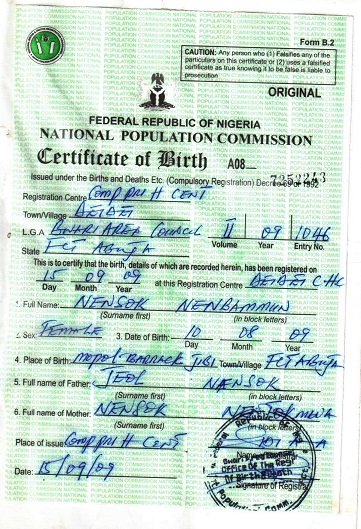 Form B.2
CAUTION: Any person who (1) Falsifies any of the
particulars on this certificate or (2) uses a falsified
certificate as true knowing it to be false is liable to
prosecution
ORIGINAL
FEDERAL REPUBLIC OF NIGERIA
NATIONAL POPULATION COMMISSION
Certificate of Birth A08
Issued under the Births and Deaths Etc. (Compulsory Registration) Decree 69 of 1992
Registration Centre COMP PRI H CENT
Town/Village DEIDEI
L.G.A BWARI AREA COUNCIL II 09 1046
Volume Year Entry No.
State FCT ABUJA
This is to certify that the birth, details of which are recorded herein, has been registered on
15 09 09 at this Registration Centre DEIDEI CHC
Day Month Year
1. Full Name: NENSOK NENBAMMUN
(Surname first) (in block letters)
2. Sex: FEMALE 3. Date of Birth: 10 08 09
Day Month Year
4. Place of Birth: MOPOL BARRACK JIBI Town/Village FCT Abuja
5. Full name of Father: JEOL NANSOK
(Surname first) (in block letters)
6. Full name of Mother: NENSOK
(Surname first) (in block letters)
Place of issue COMP PRI H CENT
Date: 15/09/09
Signature of Registrar